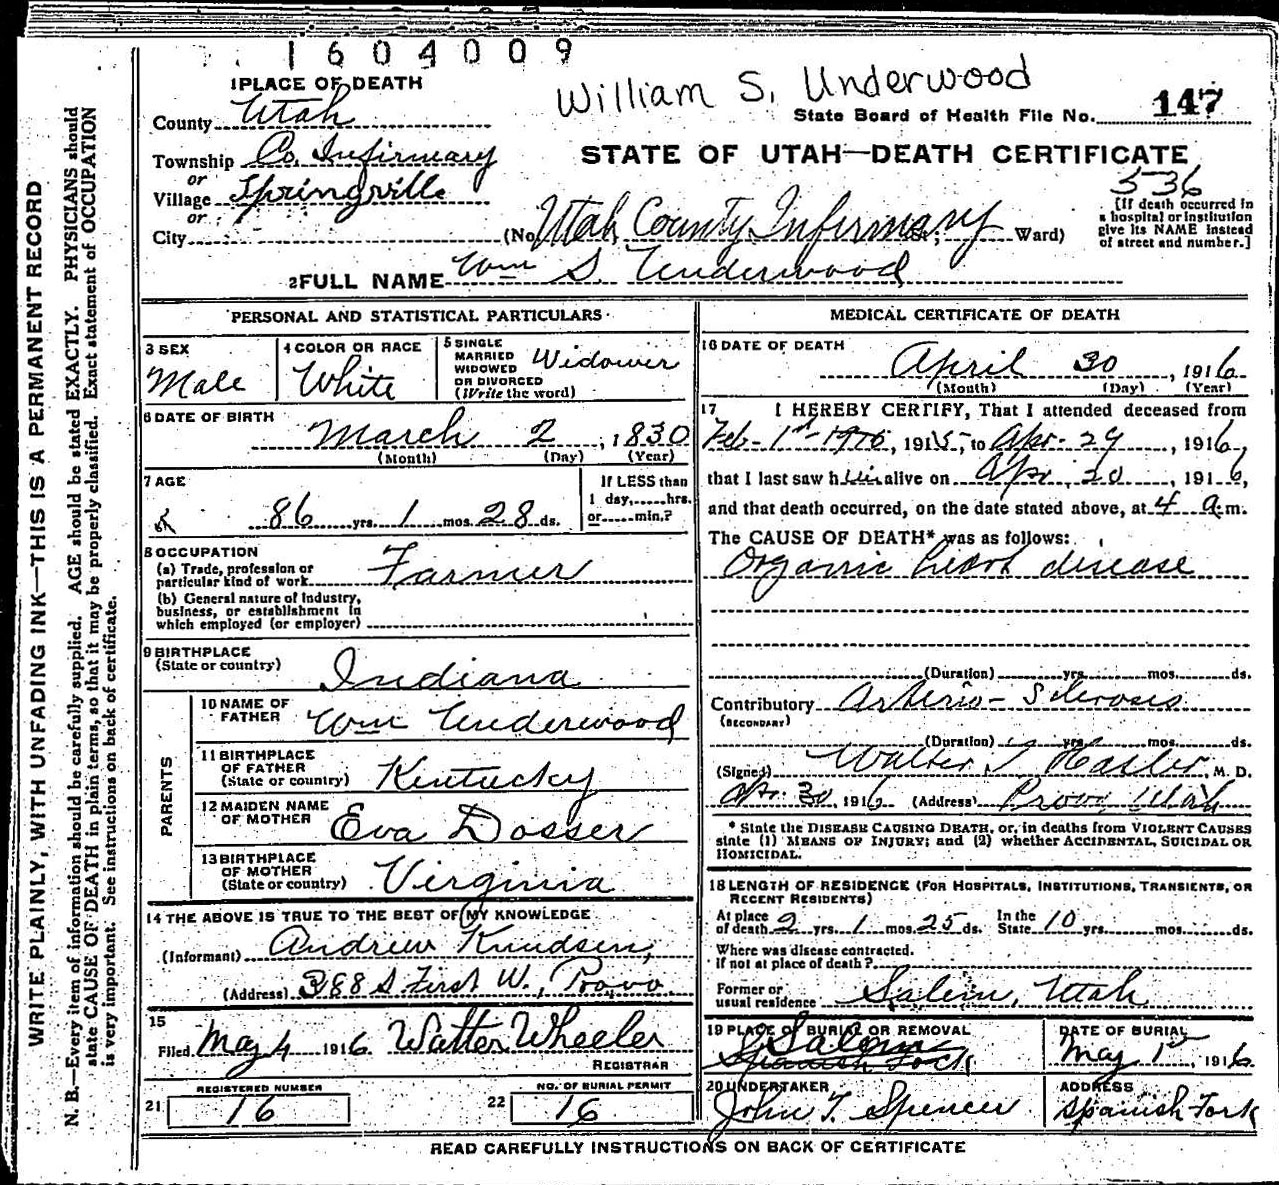 1604009
William S. Underwood
1 PLACE OF DEATH
County Utah
State Board of Health File No. 147
Township Co. Infirmary
or
Village Springville
or
City
STATE OF UTAH—DEATH CERTIFICATE
536
(No. Utah County Infirmary Ward)
[If death occurred in a hospital or institution give its NAME instead of street and number.]
2 FULL NAME Wm S. Underwood
PERSONAL AND STATISTICAL PARTICULARS
3 SEX
Male
4 COLOR OR RACE
White
5 SINGLE MARRIED WIDOWED OR DIVORCED (Write the word)
Widower
6 DATE OF BIRTH
March 2, 1830
(Month) (Day) (Year)
7 AGE
86 yrs. 1 mos. 28 ds.
If LESS than
1 day,.....hrs.
or.....min.?
8 OCCUPATION
(a) Trade, profession or particular kind of work Farmer
(b) General nature of industry, business, or establishment in which employed (or employer)
9 BIRTHPLACE
(State or country) Indiana
PARENTS
10 NAME OF FATHER Wm Underwood
11 BIRTHPLACE OF FATHER (State or country) Kentucky
12 MAIDEN NAME OF MOTHER Eva Dosser
13 BIRTHPLACE OF MOTHER (State or country) Virginia
14 THE ABOVE IS TRUE TO THE BEST OF MY KNOWLEDGE
(Informant) Andrew Knudsen,
(Address) 388 S First W., Provo
15
Filed May 4 1916 Walter Wheeler
REGISTRAR
REGISTERED NUMBER
21 16
NO. OF BURIAL PERMIT
22 16
MEDICAL CERTIFICATE OF DEATH
16 DATE OF DEATH
April 30, 1916
(Month) (Day) (Year)
17 I HEREBY CERTIFY, That I attended deceased from
Feb. 1st 1916, 1915, to Apr. 29, 1916,
that I last saw him alive on Apr. 20, 1916,
and that death occurred, on the date stated above, at 4 a.m.
The CAUSE OF DEATH* was as follows:
Organic heart disease
(Duration) yrs. mos. ds.
Contributory Arterio-Sclerosis
(SECONDARY)
(Duration) yrs. mos. ds.
(Signed) Walter T Hasler, M. D.
Apr. 30, 1916 (Address) Provo, Utah
* State the DISEASE CAUSING DEATH, or, in deaths from VIOLENT CAUSES
state (1) MEANS OF INJURY; and (2) whether ACCIDENTAL, SUICIDAL OR
HOMICIDAL.
18 LENGTH OF RESIDENCE (FOR HOSPITALS, INSTITUTIONS, TRANSIENTS, OR
RECENT RESIDENTS)
At place of death 2 yrs. 1 mos. 25 ds. In the State 10 yrs. mos. ds.
Where was disease contracted,
if not at place of death?
Former or usual residence Salem, Utah
19 PLACE OF BURIAL OR REMOVAL
Salem
Spanish Fork
DATE OF BURIAL
May 1st, 1916
20 UNDERTAKER
John T. Spencer
ADDRESS
Spanish Fork
READ CAREFULLY INSTRUCTIONS ON BACK OF CERTIFICATE
WRITE PLAINLY, WITH UNFADING INK—THIS IS A PERMANENT RECORD
N. B.—Every item of information should be carefully supplied. AGE should be stated EXACTLY. PHYSICIANS should
state CAUSE OF DEATH in plain terms, so that it may be properly classified. Exact statement of OCCUPATION
is very important. See instructions on back of certificate.